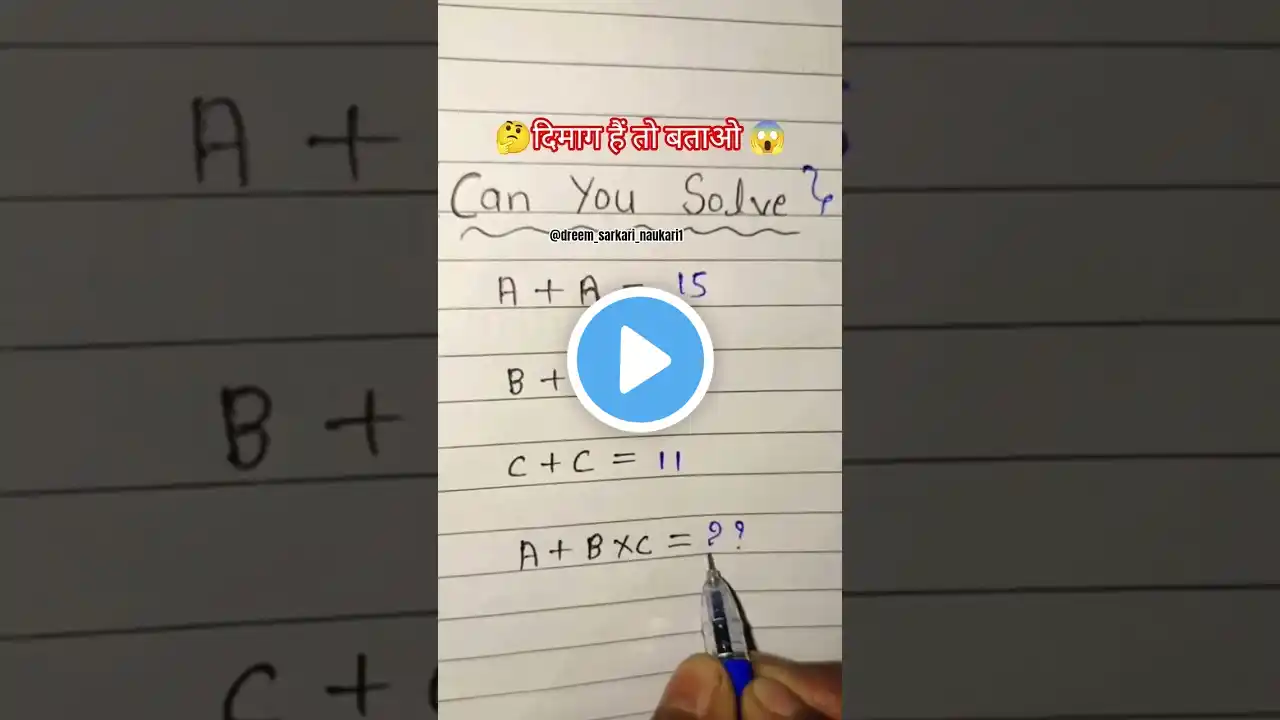 🤔दिमाग हैं तो बताओ 😱
Can You Solve ?
@dreem_sarkari_naukari1
A + A = 15
B +
C + C = 11
A + B × C = ??
A +
B +
C +